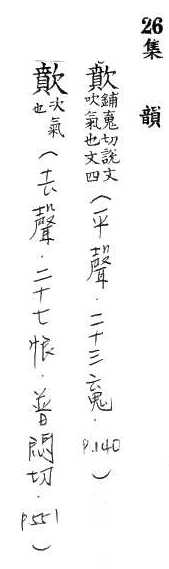 26 集 韻
歕 鋪䰟切說文吹氣也文四（平聲．二十三䰟．P.140）
歕 吹氣也（去聲．二十七恨．普悶切．P.551）